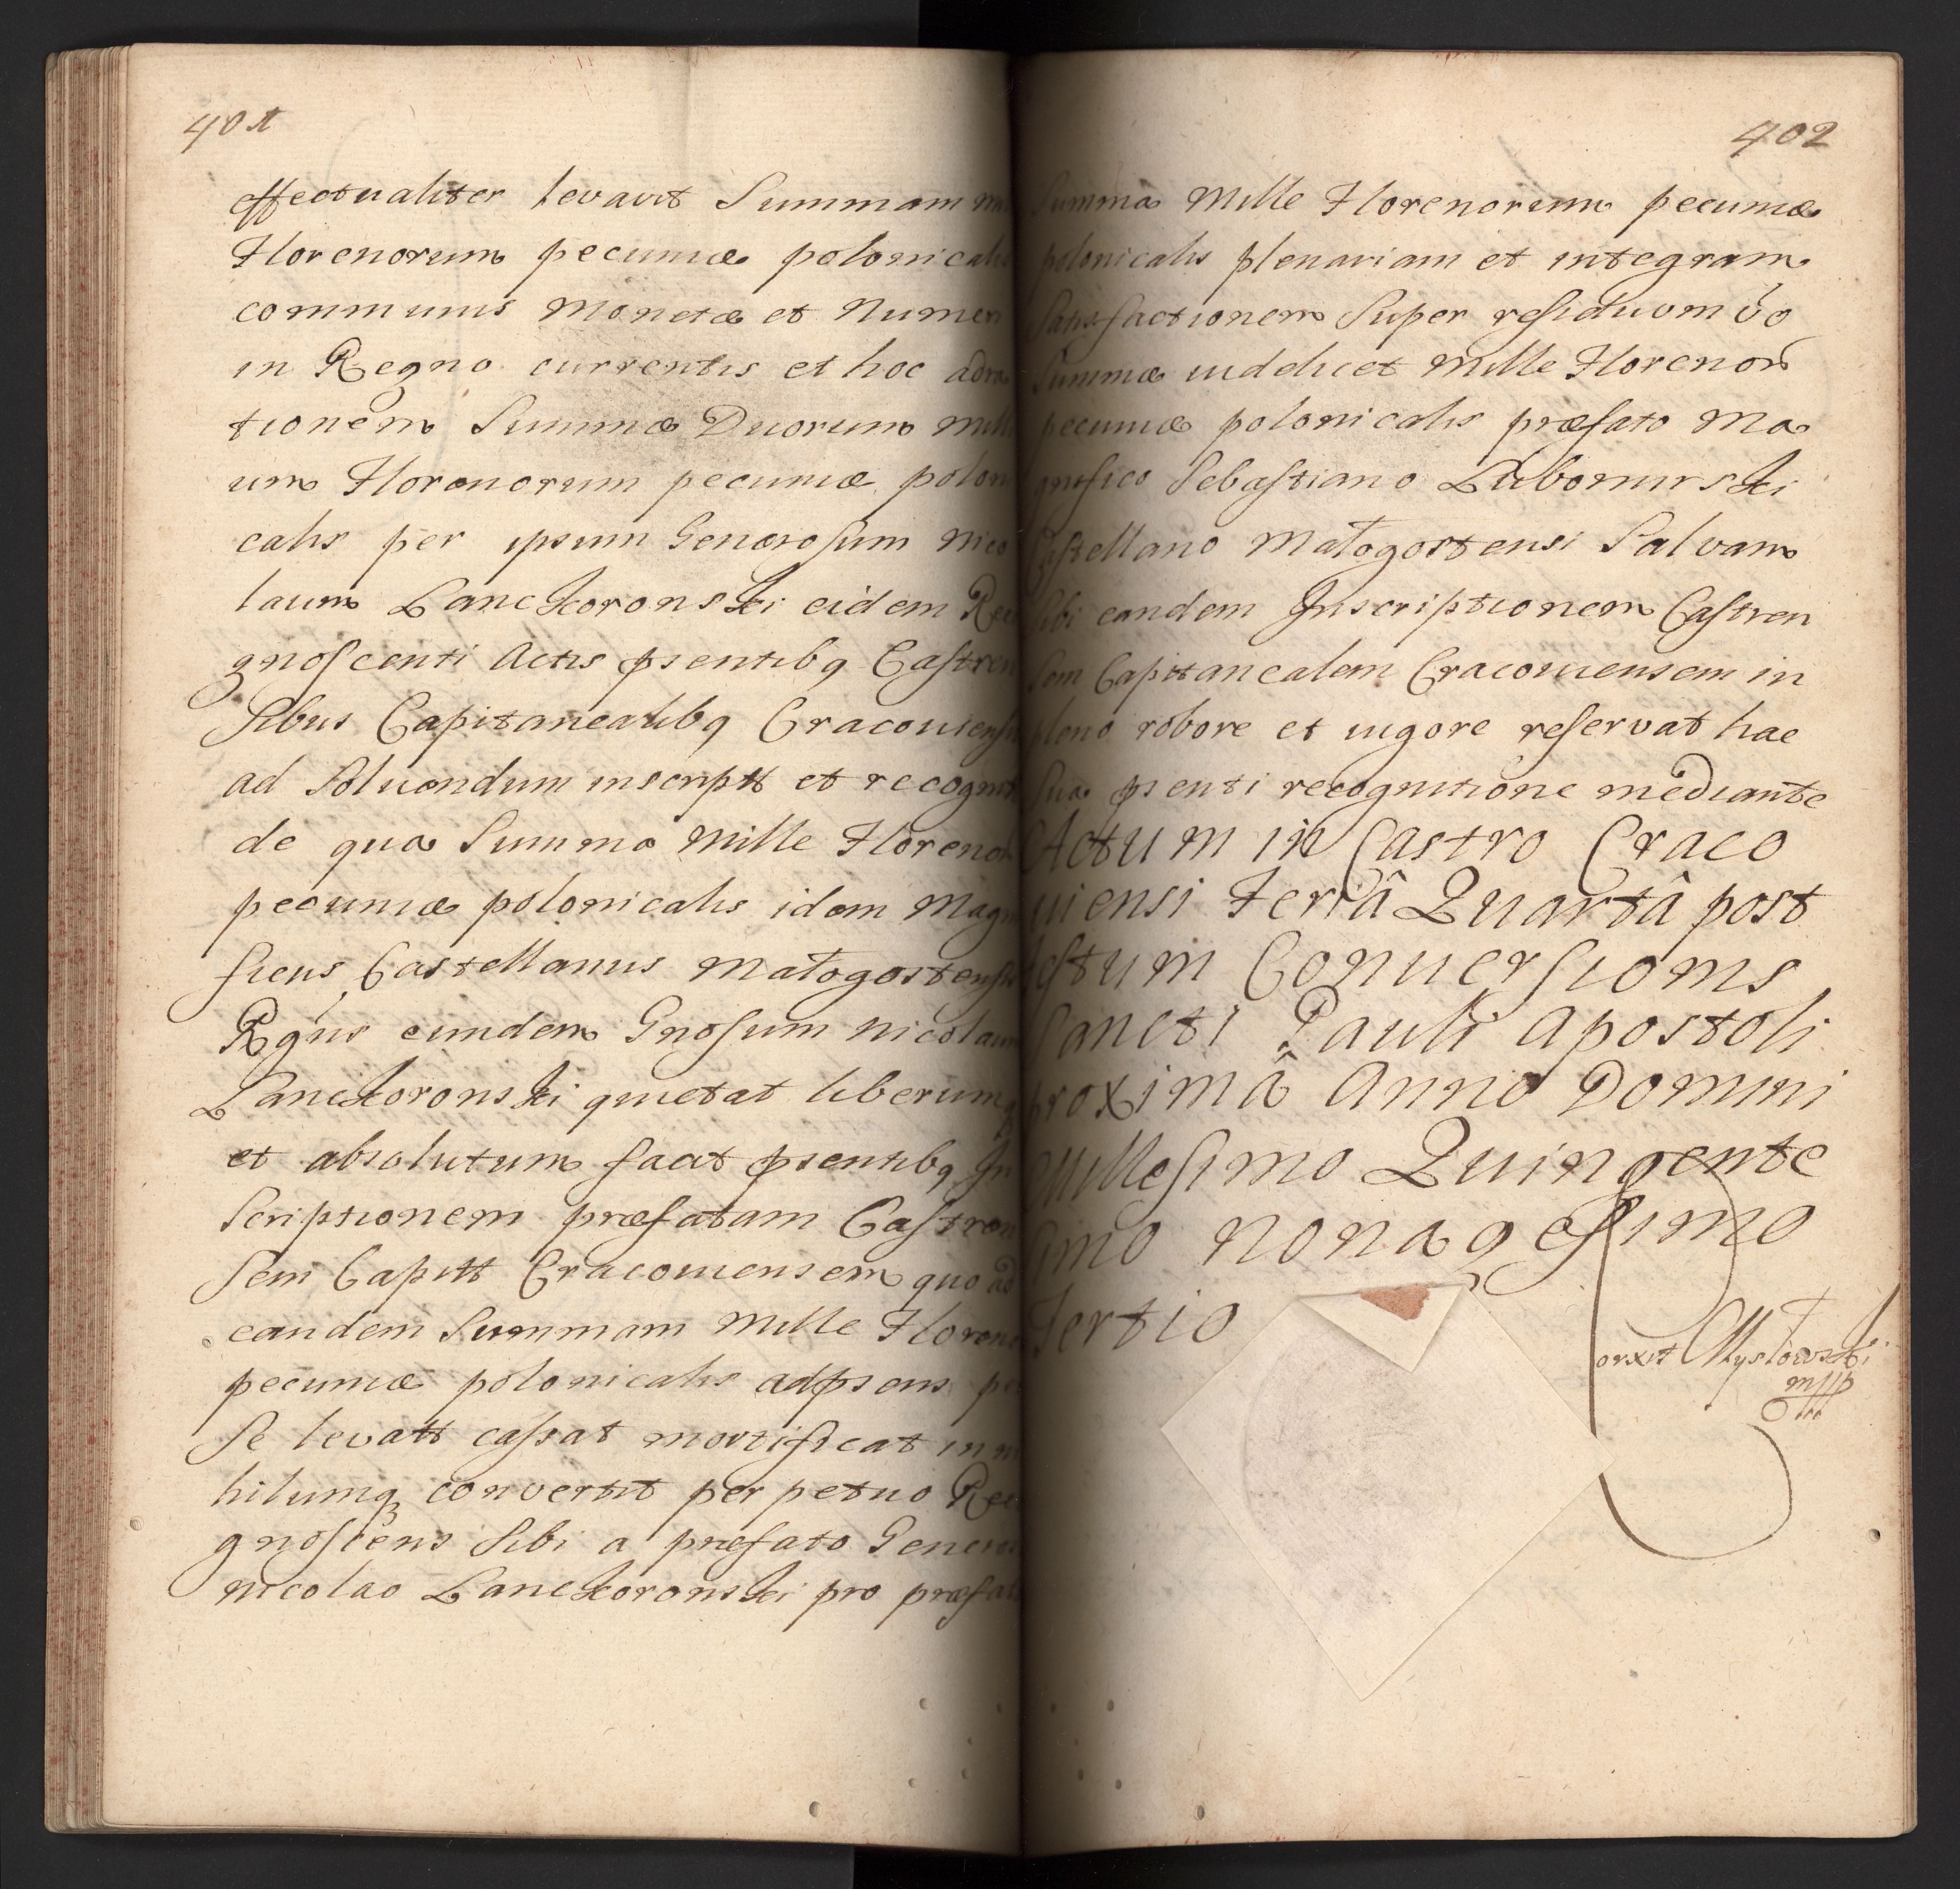 401
effectualiter levavit Summam
Florenorum pecuniæ polonicalis
communis Monetæ et Numeri
in Regno currentis et hoc adra
tionem Summæ Duorum Milli
um Florenorum pecuniæ poloni
calis per ipsum Generosum Nico
laum Lanckoronski eidem Reco
gnoscenti Actis psentibq Castren
sibus Capitanealibq Cracouiensib
ad Soluendum inscriptt et recognit
de qua Summa Mille Florenor
pecuniæ polonicalis idem Magni
ficus Castellanus Małogostensis
Rgñs eundem Gnosum Nicolaum
Lanckoronski quietat liberumq
et absolutum facit psentibq In
scriptionem præfatam Castren
sem Capitt Cracouiensem quo ad
eandem Summam Mille Floreno
pecuniæ polonicalis adpsens per
Se levatt cassat mortificat in ni
hilumq convertit perpetuo Reco
gnoscens Sibi a præfato Generos
Nicolao Lanckoronski pro præfata
402
Summa Mille Florenorum pecuniæ
polonicalis plenariam et integram
Satisfactionem Super residuom v̄o
Summæ uidelicet Mille Florenor̄
pecuniæ polonicalis præfato Ma
gnifico Sebastiano Lubomirski
Castellano Małogostensi Salvam
Sibi eandem Inscriptionem Castren
sem Capitanealem Cracouiensem in
pleno robore et uigore reservat hac
Sua psenti recognitione mediante
Actum in Castro Craco
uiensi Feriâ Quartâ post
festum Conuersionis
Sancti Pauli Apostoli
proximâ Anno Domini
Millesimo Quingente
simo nonagesimo
Tertio
Mysłowski
mpp